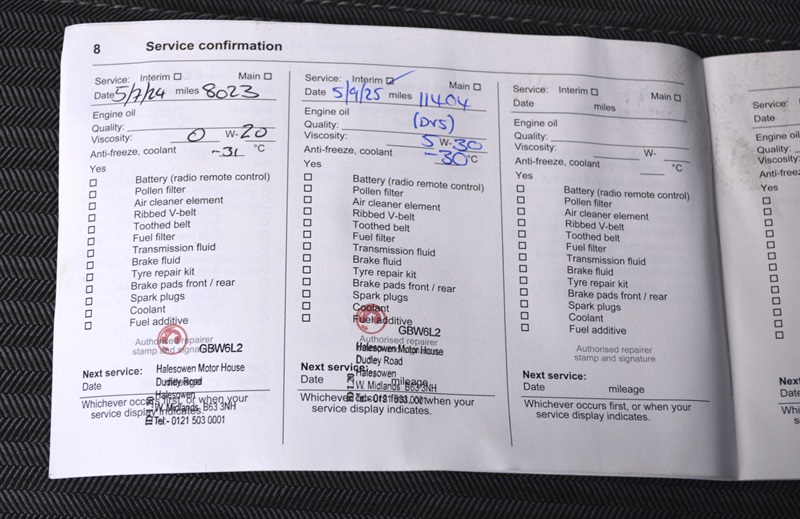 8 Service confirmation
Service: Interim Main
Date 5/7/24 miles 8023
Engine oil
Quality:
Viscosity: 0 W-20
Anti-freeze, coolant -31 °C
Yes
Battery (radio remote control)
Pollen filter
Air cleaner element
Ribbed V-belt
Toothed belt
Fuel filter
Transmission fluid
Brake fluid
Tyre repair kit
Brake pads front / rear
Spark plugs
Coolant
Fuel additive
Authorised repairer
stamp and signature GBW6L2
Halesowen Motor House
Next service:
Dudley Road
Date mileage
Halesowen
Whichever occurs first, or when your
W. Midlands B63 3NH
service display indicates.
Tel:- 0121 503 0001
Service: Interim ✓ Main
Date 5/9/25 miles 11404
Engine oil (DV5)
Quality:
Viscosity: 5 W-30
Anti-freeze, coolant -30 °C
Yes
Battery (radio remote control)
Pollen filter
Air cleaner element
Ribbed V-belt
Toothed belt
Fuel filter
Transmission fluid
Brake fluid
Tyre repair kit
Brake pads front / rear
Spark plugs
Coolant
Fuel additive
GBW6L2
Authorised repairer
Halesowen Motor House
stamp and signature
Dudley Road
Next service:
Halesowen
Date mileage
W. Midlands B63 3NH
Whichever occurs first, or when your
Tel:- 0121 503 0001
service display indicates.
Service: Interim Main
Date miles
Engine oil
Quality:
Viscosity: W-
Anti-freeze, coolant °C
Yes
Battery (radio remote control)
Pollen filter
Air cleaner element
Ribbed V-belt
Toothed belt
Fuel filter
Transmission fluid
Brake fluid
Tyre repair kit
Brake pads front / rear
Spark plugs
Coolant
Fuel additive
Authorised repairer
stamp and signature
Next service:
Date mileage
Whichever occurs first, or when your
service display indicates.
Service:
Date
Engine oil
Quality:
Viscosity:
Anti-freeze
Yes
Next
Date
Which
service